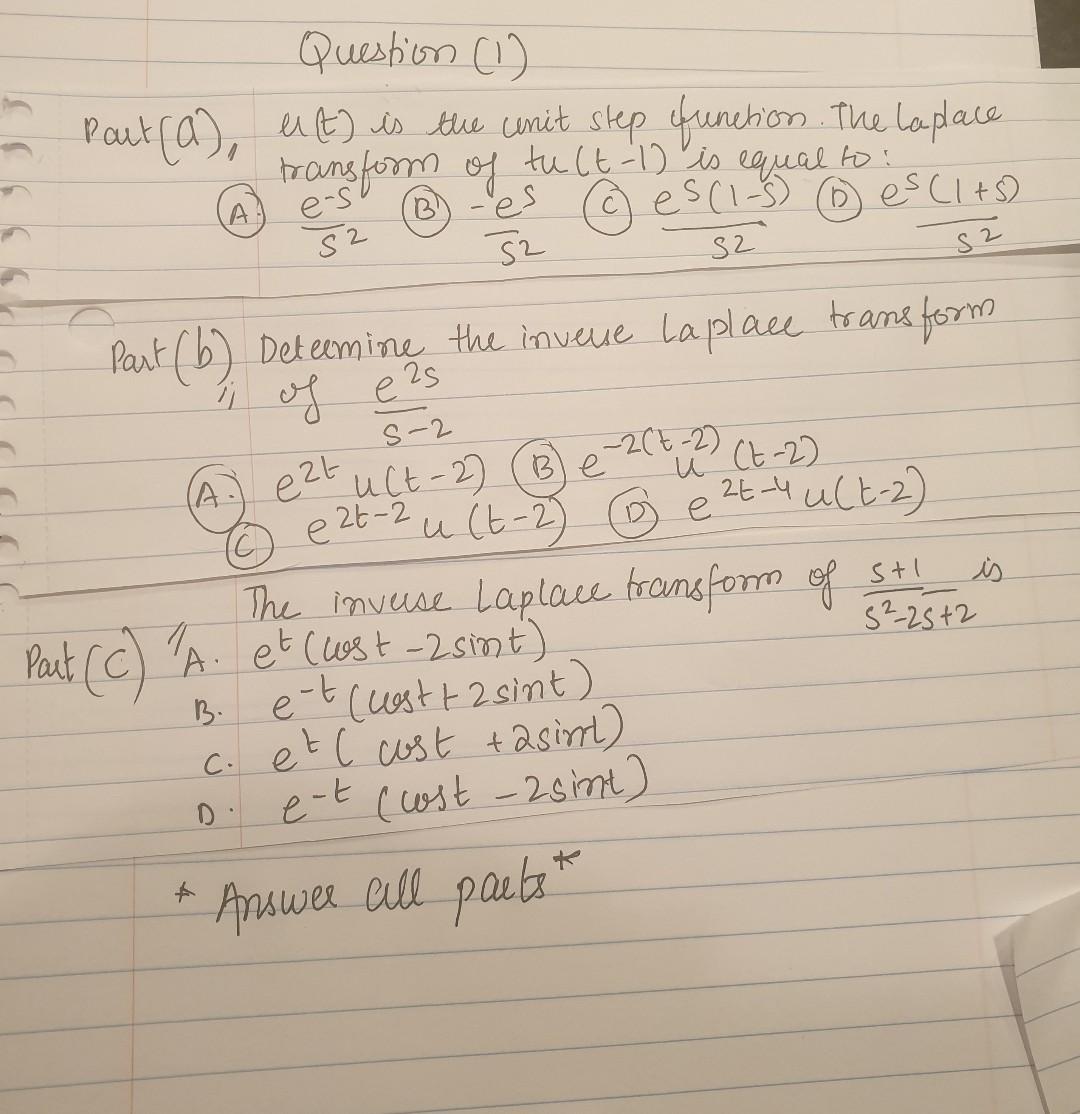 Question (1)
Part (a), u(t) is the unit step function. The laplace
transform of tu(t-1) is equal to:
(A.) e^-s / s^2 (B) -e^s / s^2 (C) e^s(1-s) / s^2 (D) e^s(1+s) / s^2
Part (b) Determine the inverse Laplace transform
of e^2s / s-2
(A.) e^2t u(t-2) (B) e^-2(t-2) u(t-2)
(C) e^2t-2 u(t-2) (D) e^2t-4 u(t-2)
The inverse Laplace transform of s+1 / s^2-2s+2 is
Part (C) A. e^t (cost -2sint)
B. e^-t (cost + 2sint)
C. e^t (cost +2sint)
D. e^-t (cost -2sint)
* Answer all parts *